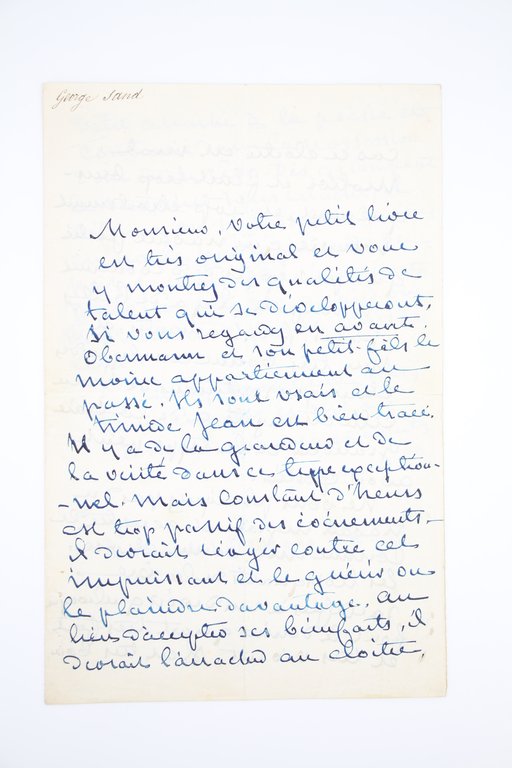 George Sand
Monsieur, votre petit livre
est très original et vous
y montrez des qualités de
talent qui se développeront,
si vous regardez en avant.
Obermann et son petit-fils le
moine appartiennent au
passé. Ils sont vrais et le
timide Jean est bien tracé.
Il y a de la grandeur et de
la vérité dans ce type exception-
-nel. Mais Constant d'heurs
est trop passif des évènements_
Il devrait réagir contre cet
impuissant et le guérir ou
le plaindre davantage, au
lieu d'accepter ses bienfaits, il
devrait l'arracher au cloître,